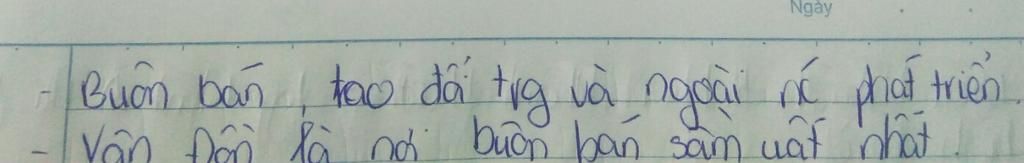 Ngày
- Buôn bán, tao đổi trg và ngoài nc phát triển.
- Vân Đồn là nơi buôn bán sầm uất nhất.